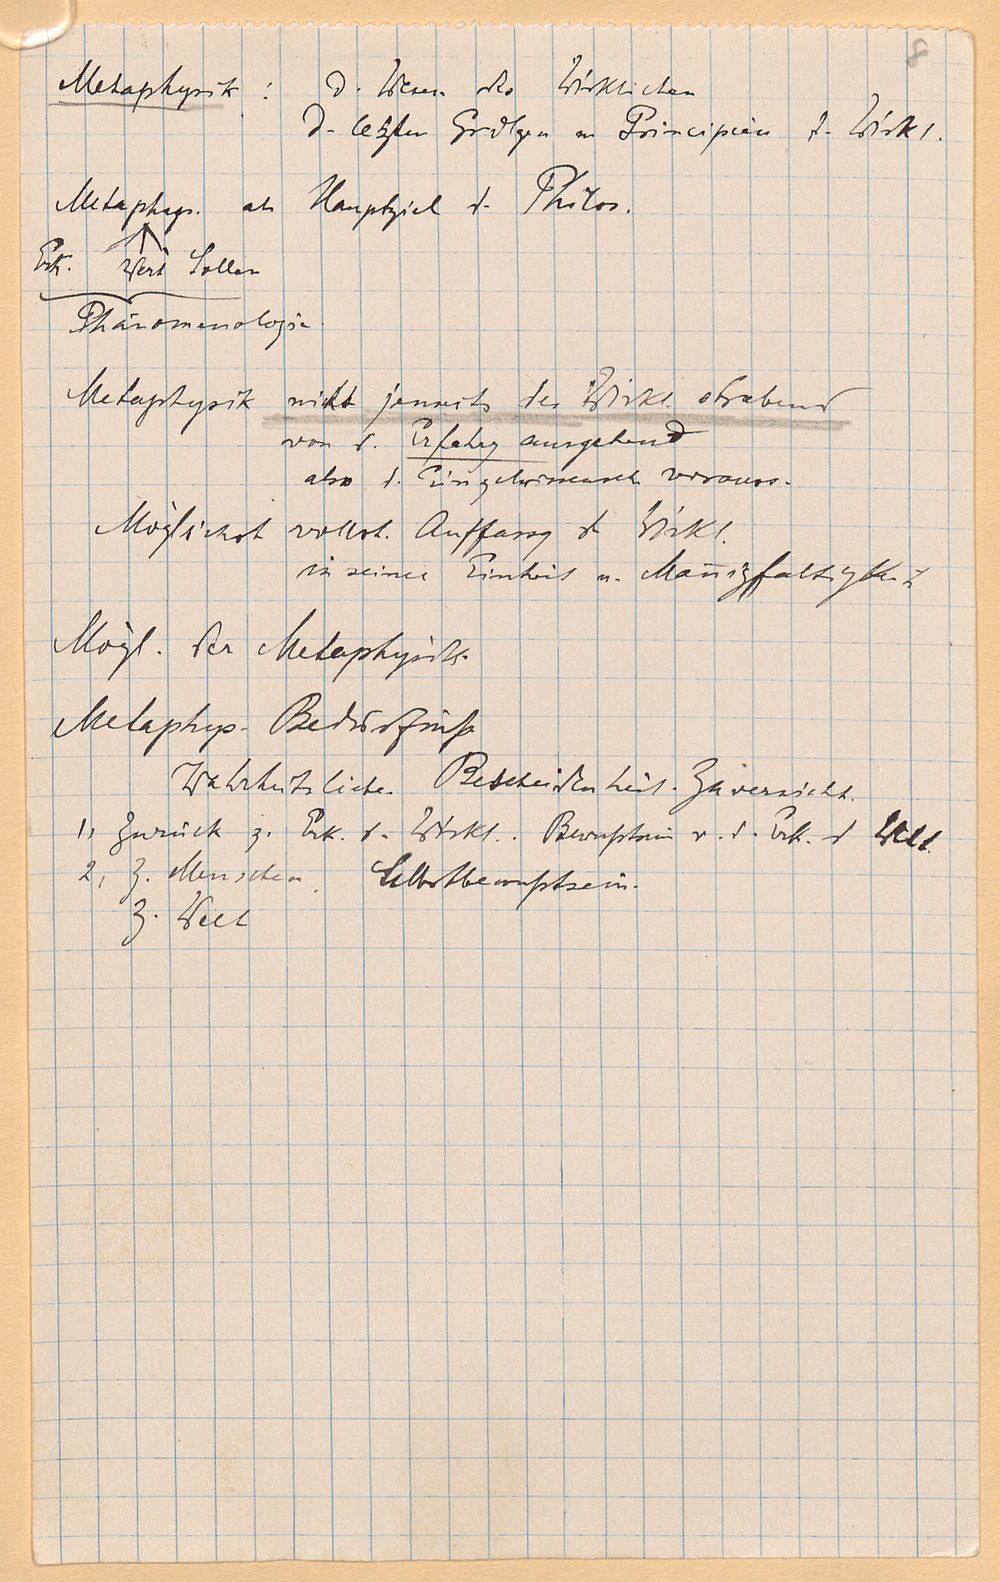 8
Metaphysik : D. Wesen des Wirklichen
D. letzten Grdlgen u Principien d. Wirkl.
Metaphys. als Hauptziel d. Philos.
Erk. Wert Sollen
Phänomenologie.
Metaphysik nicht jenseits des Wirkl. strebend
von d. Erfahrg ausgehend
also d. Einzelwissensch voraus.
Möglichst vollst. Auffassg d Wirkl.
in seiner Einheit u. Mannigfaltigkeit
Mögl. der Metaphysik.
Metaphys. Bedürfniß
Wahrheitsliebe. Bescheidenheit. Zuversicht.
1, Zurück z. Erk. d. Wirkl. Bewußtsein v. d. Erk. d Welt.
2, Z. Menschen. Selbstbewußtsein.
Z. Welt